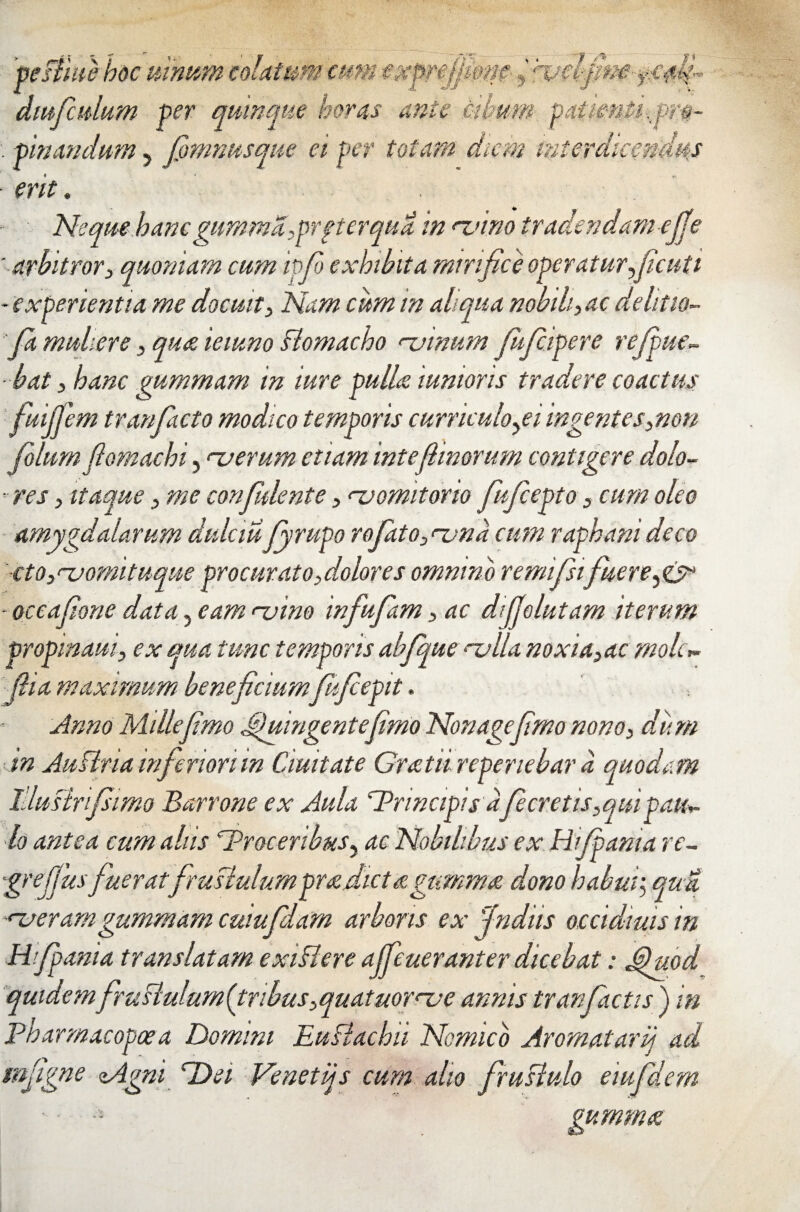 pestiuè hoc uinum colatum cum expressione, vel sine, cali-
diusculum per quinque horas ante cibum patienti pro-
pinandum, somnusque ei per totam diem interdicendus
erit.
Neque hanc gummã, pręterquã in vino tradendam esse
arbitror, quoniam cum ipso exhibita mirificè operatur, sicuti
experientia me docuit, Nam cùm in aliqua nobili, ac delitio-
sa muliere, quæ ieiuno stomacho vinum suscipere respue-
bat, hanc gummam in iure pullæ iunioris tradere coactus
fuissem transacto modico temporis curriculo, ei ingentes, non
solum stomachi, verum etiam intestinorum contigere dolo-
res, itaque, me consulente, vomitorio suscepto, cum oleo
amygdalarum dulciũ syrupo rosato, vnà cum raphani deco
cto, vomituque procurato, dolores omninò remissi fuere, &
occasione data, eam vino infusam, ac dissolutam iterum
propinaui, ex qua tunc temporis absque vlla noxia, ac mole-
stia maximum beneficium suscepit.
Anno Millesimo Quingentesimo Nonagesimo nono, dùm
in Austria inferiori in Ciuitate Grætii reperiebar à quodam
Illustrissimo Barrone ex Aula Principis à secretis, qui pau-
lo antea cum aliis Proceribus, ac Nobilibus ex Hispania re-
gressus fuerat frustulum prædictæ gummæ dono habui; quã
veram gummam cuiusdam arboris ex Indiis occidiuis in
Hispania translatam existere asseueranter dicebat: Quod
quidem frustulum (tribus, quatuorve annis transactis) in
Pharmacopœa Domini Eustachii Nomicò Aromatarij ad
insigne Agni Dei Venetijs cum alio frustulo eiusdem
gummæ